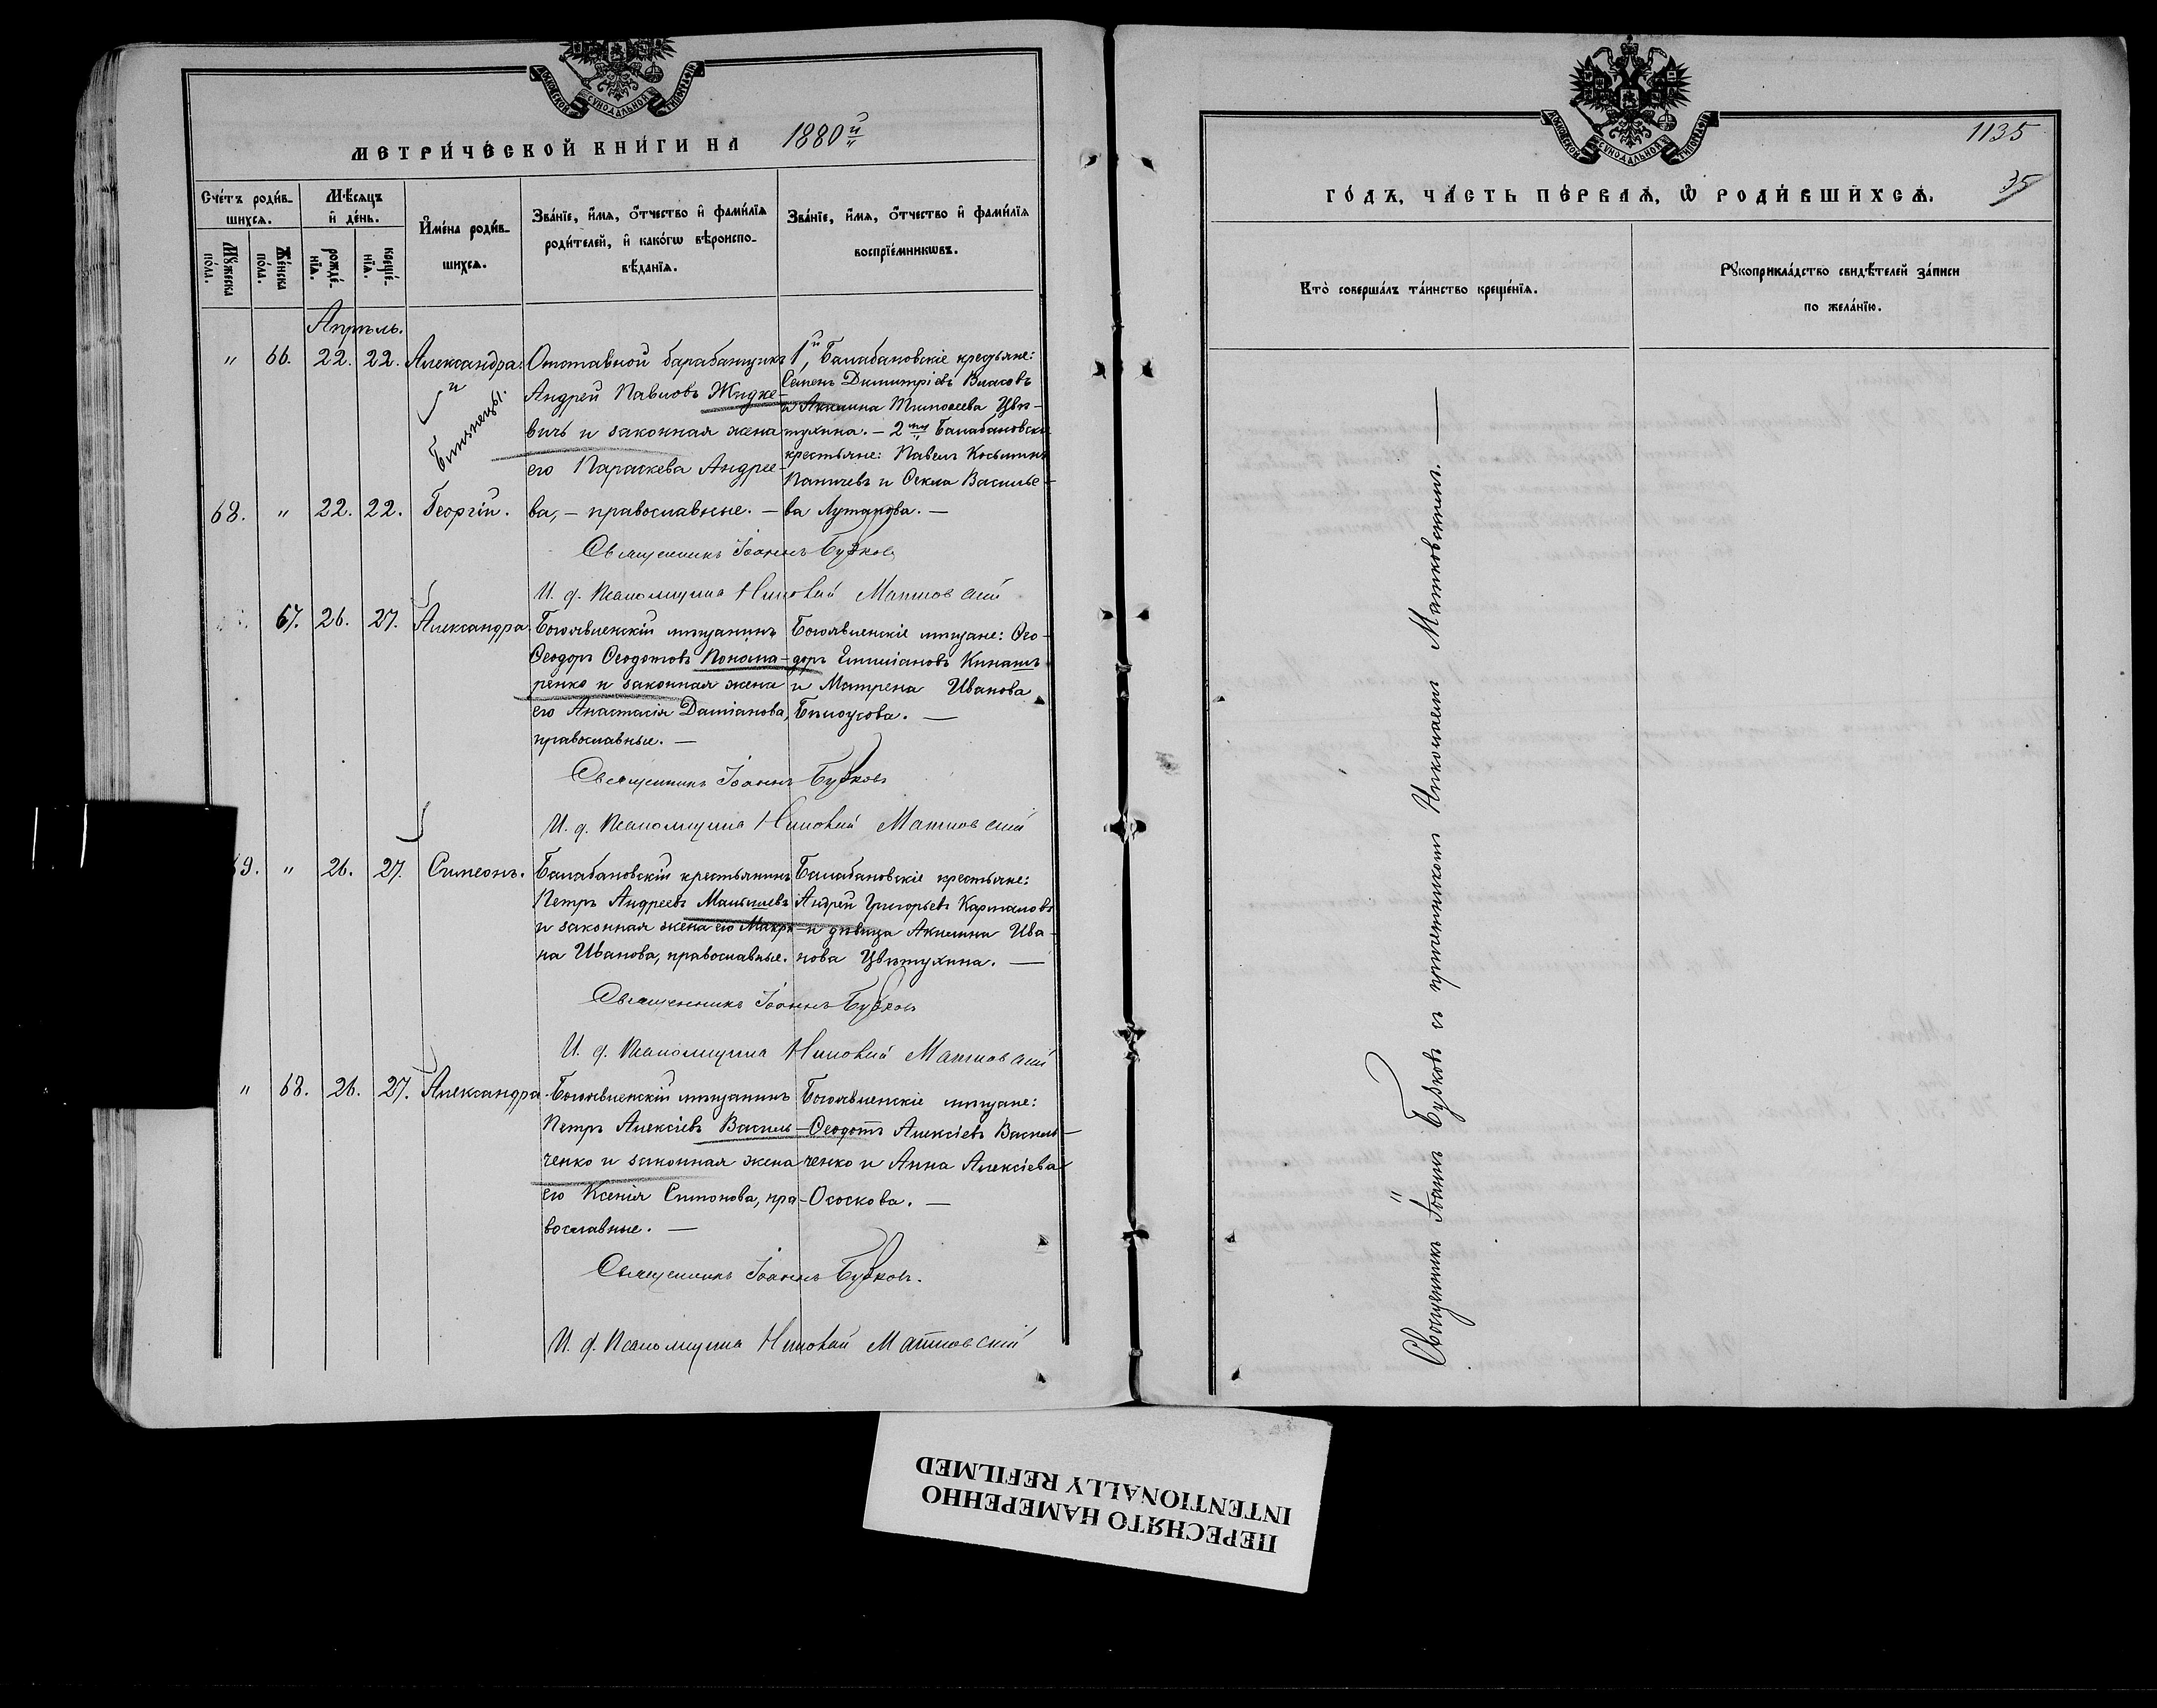 МОСКОВСКОЙ СѴНОДАЛЬНОЙ ТИПОГРАФІИ
МЕТРИ́ЧЕСКОЙ КНИ́ГИ НА 1880й
Сче́тъ роди́в-
шихсѧ.
Мѣ́сѧцъ
и҆ де́нь.
И҆мена̀ роди́в-
шихсѧ.
Зва́нїе, и҆́мѧ, ѻ҆́тчество и҆ фами́лїѧ
роди́телей, и҆ како́гѡ вѣроиспо-
вѣ́данїѧ.
Зва́нїе, и҆́мѧ, ѻ҆́тчество и҆ фами́лїѧ
воспрїе́мникѡвъ.
Мꙋ́жеска
по́ла.
Же́нска
по́ла.
рожде́-
нїѧ.
креще́-
нїѧ.
Апрѣль.
" 66. 22. 22. Александра.
и
Близнецы.
68. " 22. 22. Георгій.
Отставной барабанщикъ
Андрей Павловъ Жидке-
вичъ и законная жена
его Параскева Андрее-
ва, – православные. –
1й, Балабановскіе крестьяне:
Семенъ Димитріевъ Власовъ
и Акилина Тимоѳеева Цвѣ-
тухина. – 2 Балабановскіе
крестьяне: Павелъ Косьминъ
Паничевъ и Ѳекла Василье-
ва Лутанова. –
Священникъ Іоаннъ Бузковъ
И. д. Псаломщика Николай Матковскій
67. 26. 27. Александра.
Богоявленскій мѣщанинъ
Ѳеодоръ Ѳеодотовъ Понома-
ренко и законная жена
его Анастасія Даміанова,
православные. –
Богоявленскіе мѣщане: Ѳео-
доръ Емиліановъ Кинашъ
и Матрена Иванова
Бѣлоусова. –
Священникъ Іоаннъ Бузковъ
И. д. Псаломщика Николай Матковскій
69. " 26. 27. Симеонъ.
Балабановскій крестьянинъ
Петръ Андреевъ Малышевъ
и законная жена его Макри-
на Иванова, православные.
Балабановскіе крестьяне:
Андрей Григорьевъ Кармановъ
и дѣвица Акилина Ива-
нова Цвѣтухина. –
Священникъ Іоаннъ Бузковъ
И. д. Псаломщика Николай Матковскій
" 68. 26. 27. Александра.
Богоявленскій мѣщанинъ
Петръ Алексіевъ Василь-
ченко и законная жена
его Ксенія Симонова, пра-
вославные. –
Богоявленскіе мѣщане:
Ѳеодотъ Алексіевъ Василь-
ченко и Анна Алексіева
Ососкова. –
Священникъ Іоаннъ Бузковъ.
И. д. Псаломщика Николай Матковскій
МОСКОВСКОЙ СѴНОДАЛЬНОЙ ТИПОГРАФІИ
1135
35
ГО́ДЪ, ЧА́СТЬ ПЕ́РВАѦ, Ѡ҆ РОДИ́ВШИХСѦ.
Кто̀ соверша́лъ та́инство креще́нїѧ.
Рꙋкоприкла́дство свидѣ́телей за́писи
по жела́нїю.
Священникъ Іоаннъ Бузковъ съ причетникомъ Николаемъ Матковскимъ. –
ПЕРЕСНЯТО НАМЕРЕННО
INTENTIONALLY REFILMED